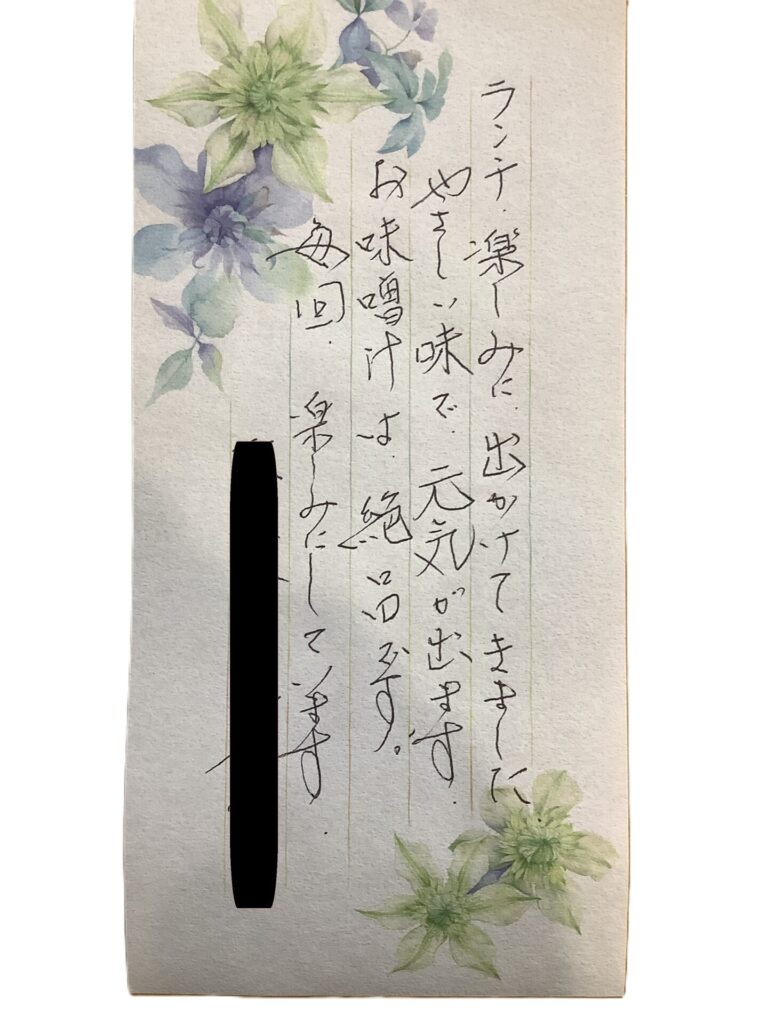 ランチ、楽しみに、出かけてきました
やさしい味で、元気が出ます。
お味噌汁は、絶品です。
毎回、楽しみにしています。